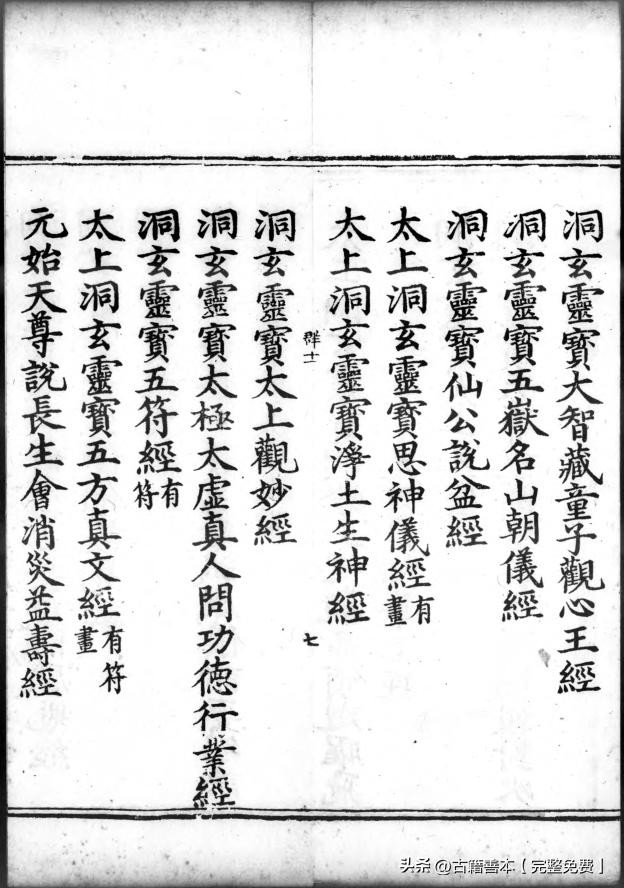 洞玄靈寶大智藏童子觀心王經
洞玄靈寶五嶽名山朝儀經
洞玄靈寶仙公說盆經
太上洞玄靈寶思神儀經有畫
太上洞玄靈寶淨土生神經
群十一
七
洞玄靈寶太上觀妙經
洞玄靈寶太極太虛真人問功德行業經
洞玄靈寶五符經有符
太上洞玄靈寶五方真文經有符畫
元始天尊說長生會消災益壽經
头条 @古籍善本【完整免费】